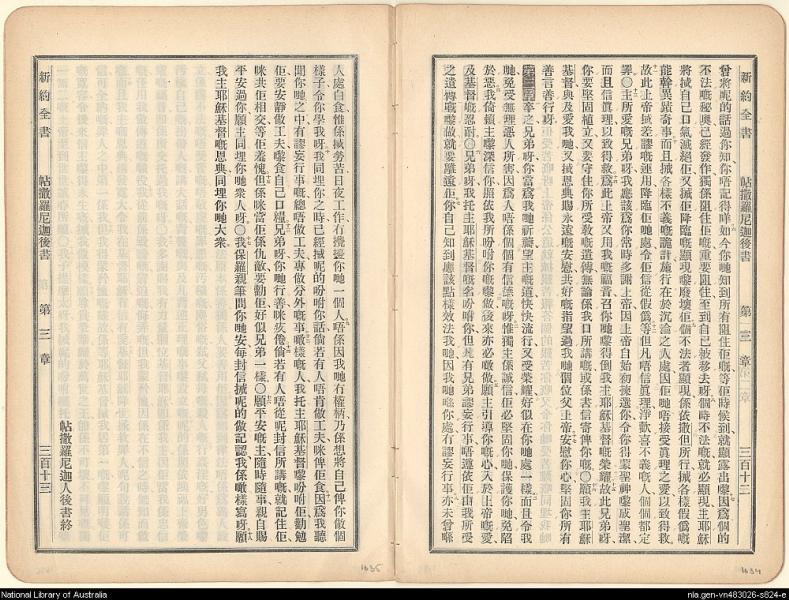 新約全書 帖撒羅尼迦後書 第三章
曾將呢的話過你知你唔記得咩如今你哋知到所有阻住佢嘅等佢時候到就顯露出嚟因爲個的
不法嘅秘奧已經發作獨係阻住佢嘅重要阻住至到自己被移去呀個時不法嘅就必顯現主耶穌
將㧡自己口氣滅絕佢又㧡佢降臨嘅顯現嚟廢壞佢個不法者顯現係依撒但所行㧡各樣假僞嘅
能幹異蹟奇事而且㧡各樣不義嘅詭計施行在於沉淪之人處因佢哋唔接受眞理之愛以致得救
故此上帝㧡差謬嘅運用降臨佢哋處令佢信從假僞等但凡唔信眞理淨歡喜不義嘅人個個都定
罪〇主所愛嘅兄弟呀我應該爲你常時多謝上帝因上帝自始初揀選你令你得蒙聖神嚟成聖潔
而且信眞理以致得救爲此上帝又用我嘅福音召你哋嚟得倒我主耶穌基督嘅榮耀故此兄弟呀
你要堅固植立又要守住你所受敎嘅遺傳無論係我口所講嘅或係書信寄俾你嘅〇願我主耶穌
基督與及愛我哋又㧡恩典賜永遠嘅安慰共好嘅指望過我哋個位父上帝安慰你心堅固你所有
善言善行呀
第三章 卒之兄弟呀你要爲我哋祈禱等主嘅道快快流行又受榮耀好似在你哋處一樣而且令我
哋免受無理惡人所害因爲人唔係個個有信係嘅呀惟獨主係誠信佢必堅固你哋保護你哋免陷
於惡我倚賴主嚟深信你照依我所吩咐你哋嚟做後來亦必噉做願主引導你嘅心入於上帝嘅愛
及基督嘅忍耐〇兄弟呀我托主耶穌基督嘅名吩咐你但凡有兄弟謬妄行事唔遵依佢由我所受
之遺傳嘅嚟做就要離遠佢你自己知到應該點樣效法我哋因我哋喺你處冇謬妄行事亦未曾喺
人處白食惟係㧡勞苦日夜工作冇攪擾你哋一個人唔係因我哋冇權柄乃係想將自己俾你做個
樣子令你學我呀我同埋你之時已經㧡呢的吩咐你話倘若有人唔肯做工夫咪俾佢食因爲我聽
聞你哋之中有謬妄行事嘅總唔做工夫專做分外嘅事噉樣嘅人我托主耶穌基督嚟吩咐佢勸勉
佢要安靜做工夫嚟食自己口糧兄弟呀你哋行善咪疚倦倘若有人唔從呢封信所講嘅就記住佢
咪共佢相交等佢羞愧但係咪當佢係仇敵要勸佢好似兄弟一樣〇願平安嘅主隨時隨事親自賜
平安過你願主同埋你哋衆人呀〇我保羅親筆問你哋安每封信㧡呢的做記認我係噉樣寫呀願
我主耶穌基督嘅恩典同埋你哋大衆
帖撒羅尼迦人後書終
新約全書 帖撒羅尼迦後書 第三章 三百十三
1634
1635
National Library of Australia
nla.gen-vn483026-s824-e